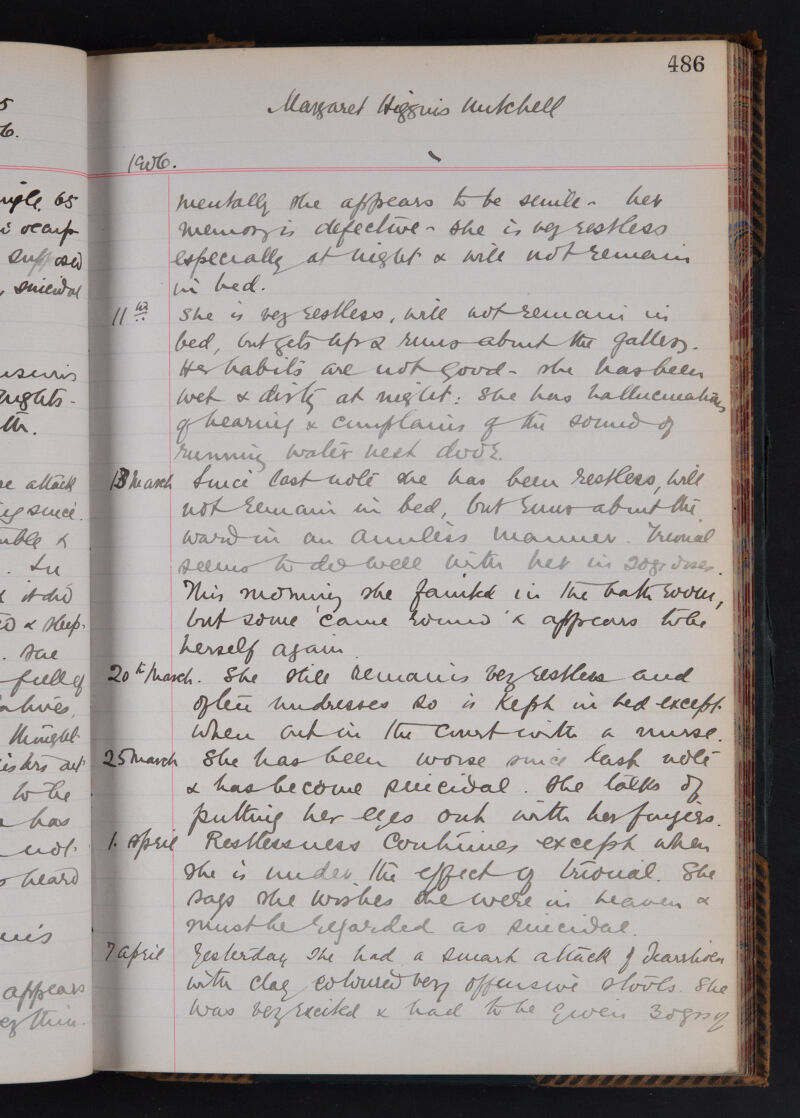 5
6.
65
suicidal
nights -
attack
since.
& sleep.
full of
thought
to be
has
not
heard
appears
486
Margaret Higgins Mitchell
1906.
mentally she appears to be senile - her
memory is defective - she is very restless
especially at night & will not remain
in bed.
11th She is very restless, will not remain in
bed, but gets up & runs about the gallery.
Her habits are not good - she has been
wet & dirty at night: She has hallucinations
of hearing & complains of the sound of
running water next door.
13 March Since last note she has been restless, will
not remain in bed, but runs about the
ward in an aimless manner. Trional
seems to do well with her in 20gr doses.
This morning she fainted in the bath room,
but some 'came round' & appears to be
herself again.
20th March. She still remains very restless and
often undresses so is kept in bed except
when out in the court with a nurse.
25 March She has been worse since last note
& has become suicidal. She talks of
putting her eyes out with her fingers.
1. April Restlessness continues except when
she is under the effect of trional. She
says she wishes she were in heaven &
must be regarded as suicidal.
7 April Yesterday she had a smart attack of diarrhoea
with clay coloured very offensive stools. She
was very excited & had to be given 30grs of